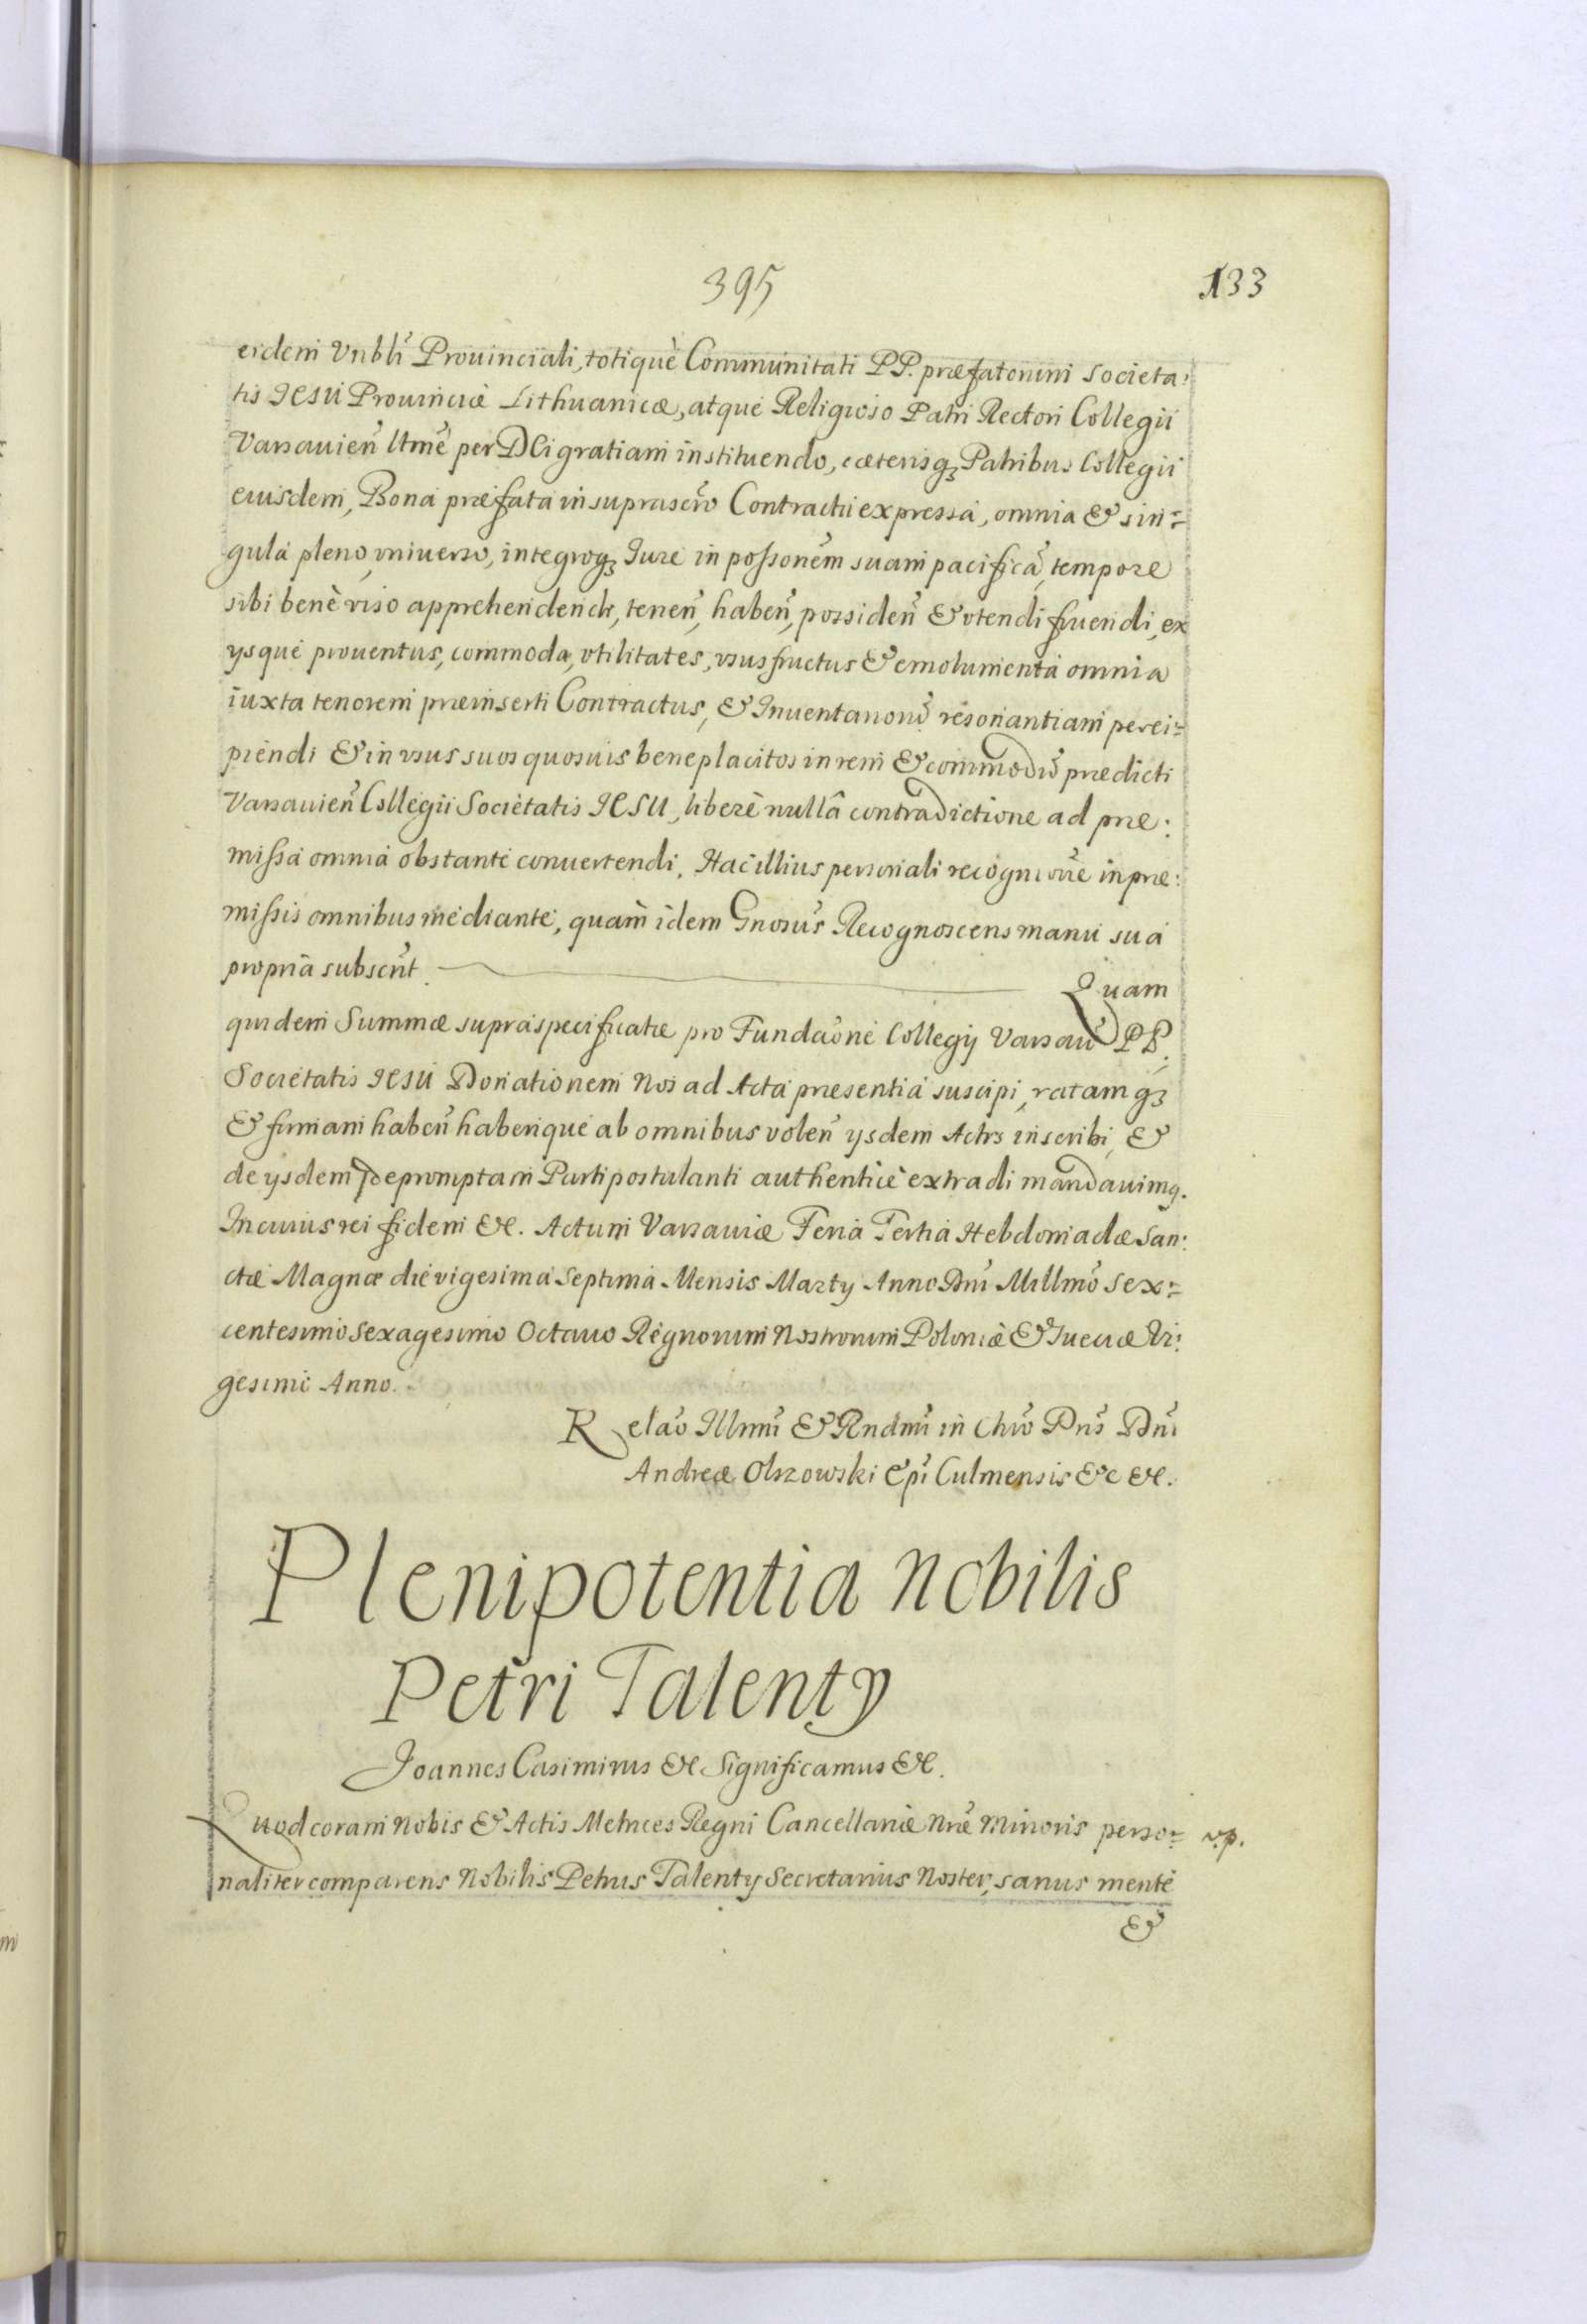 395
133
eidem Vnblī Prouinciali, totiquè Communitati PP. præfatorum Societa:
tis IESU Prouinciæ Lithuanicæ, atque Religioso Patri Rectori Collegii
Varsauień ltmē per DEi gratiam instituendo, cæterisq₃ Patribus Collegii
eiusdem, Bona præfata in suprascr̄o Contractu expressa, omnia & sin=
gula pleno, vniuerso, integroq₃ Iure in possoñem suam pacificā, tempore
sibi benè viso apprehendendi, teneń, habeń, possideń & vtendi fruendi, ex
ysque prouentus, commoda, vtilitates, vsusfructus & emolumenta omnia
iuxta tenorem præinserti Contractus, & Inuentariorū resonantiam perci=
piendi & in vsus suos quosuis beneplacitos in rem & commodū prædicti
Varsauień Collegii Societatis IESU, liberè nullâ contradictione ad præ:
missa omnia obstante conuertendi. Hac illius personali recogni͠one in præ:
missis omnibus mediante, quam idem Gnosus Recognoscens manu sua
propria subscr̄t. Quam
quidem Summæ supraspecificatæ pro Fundaōne Collegij Varsaū PP.
Societatis IESU Donationem Nos ad Acta præsentia suscipi, ratamq₃
& firmam habeń haberique ab omnibus voleń ysdem Actis inscribi, &
de ysdem depromptam Parti postulanti authenticè extradi mandauimq.
In cuius rei fidem &c. Actum Varsauiæ Feria Tertia Hebdomadæ San:
ctæ Magnæ die vigesima Septima Mensis Marty Anno Dnī Millmō Sex=
centesimo Sexagesimo Octauo Regnorum Nostrorum Poloniæ & Sueciæ Vi:
gesimo Anno.
Relaō Illmī & Rndmī in Chrō Pris Dnī
Andreæ Olszowski Epī Culmensis &c &c.
Plenipotentia Nobilis
Petri Talenty
Joannes Casimirus &c Significamus &c.
Quod coram Nobis & Actis Metrices Regni Cancellariæ Nræ Minoris perso= vp.
naliter comparens Nobilis Petrus Talenty Secretarius Noster, sanus mente
&